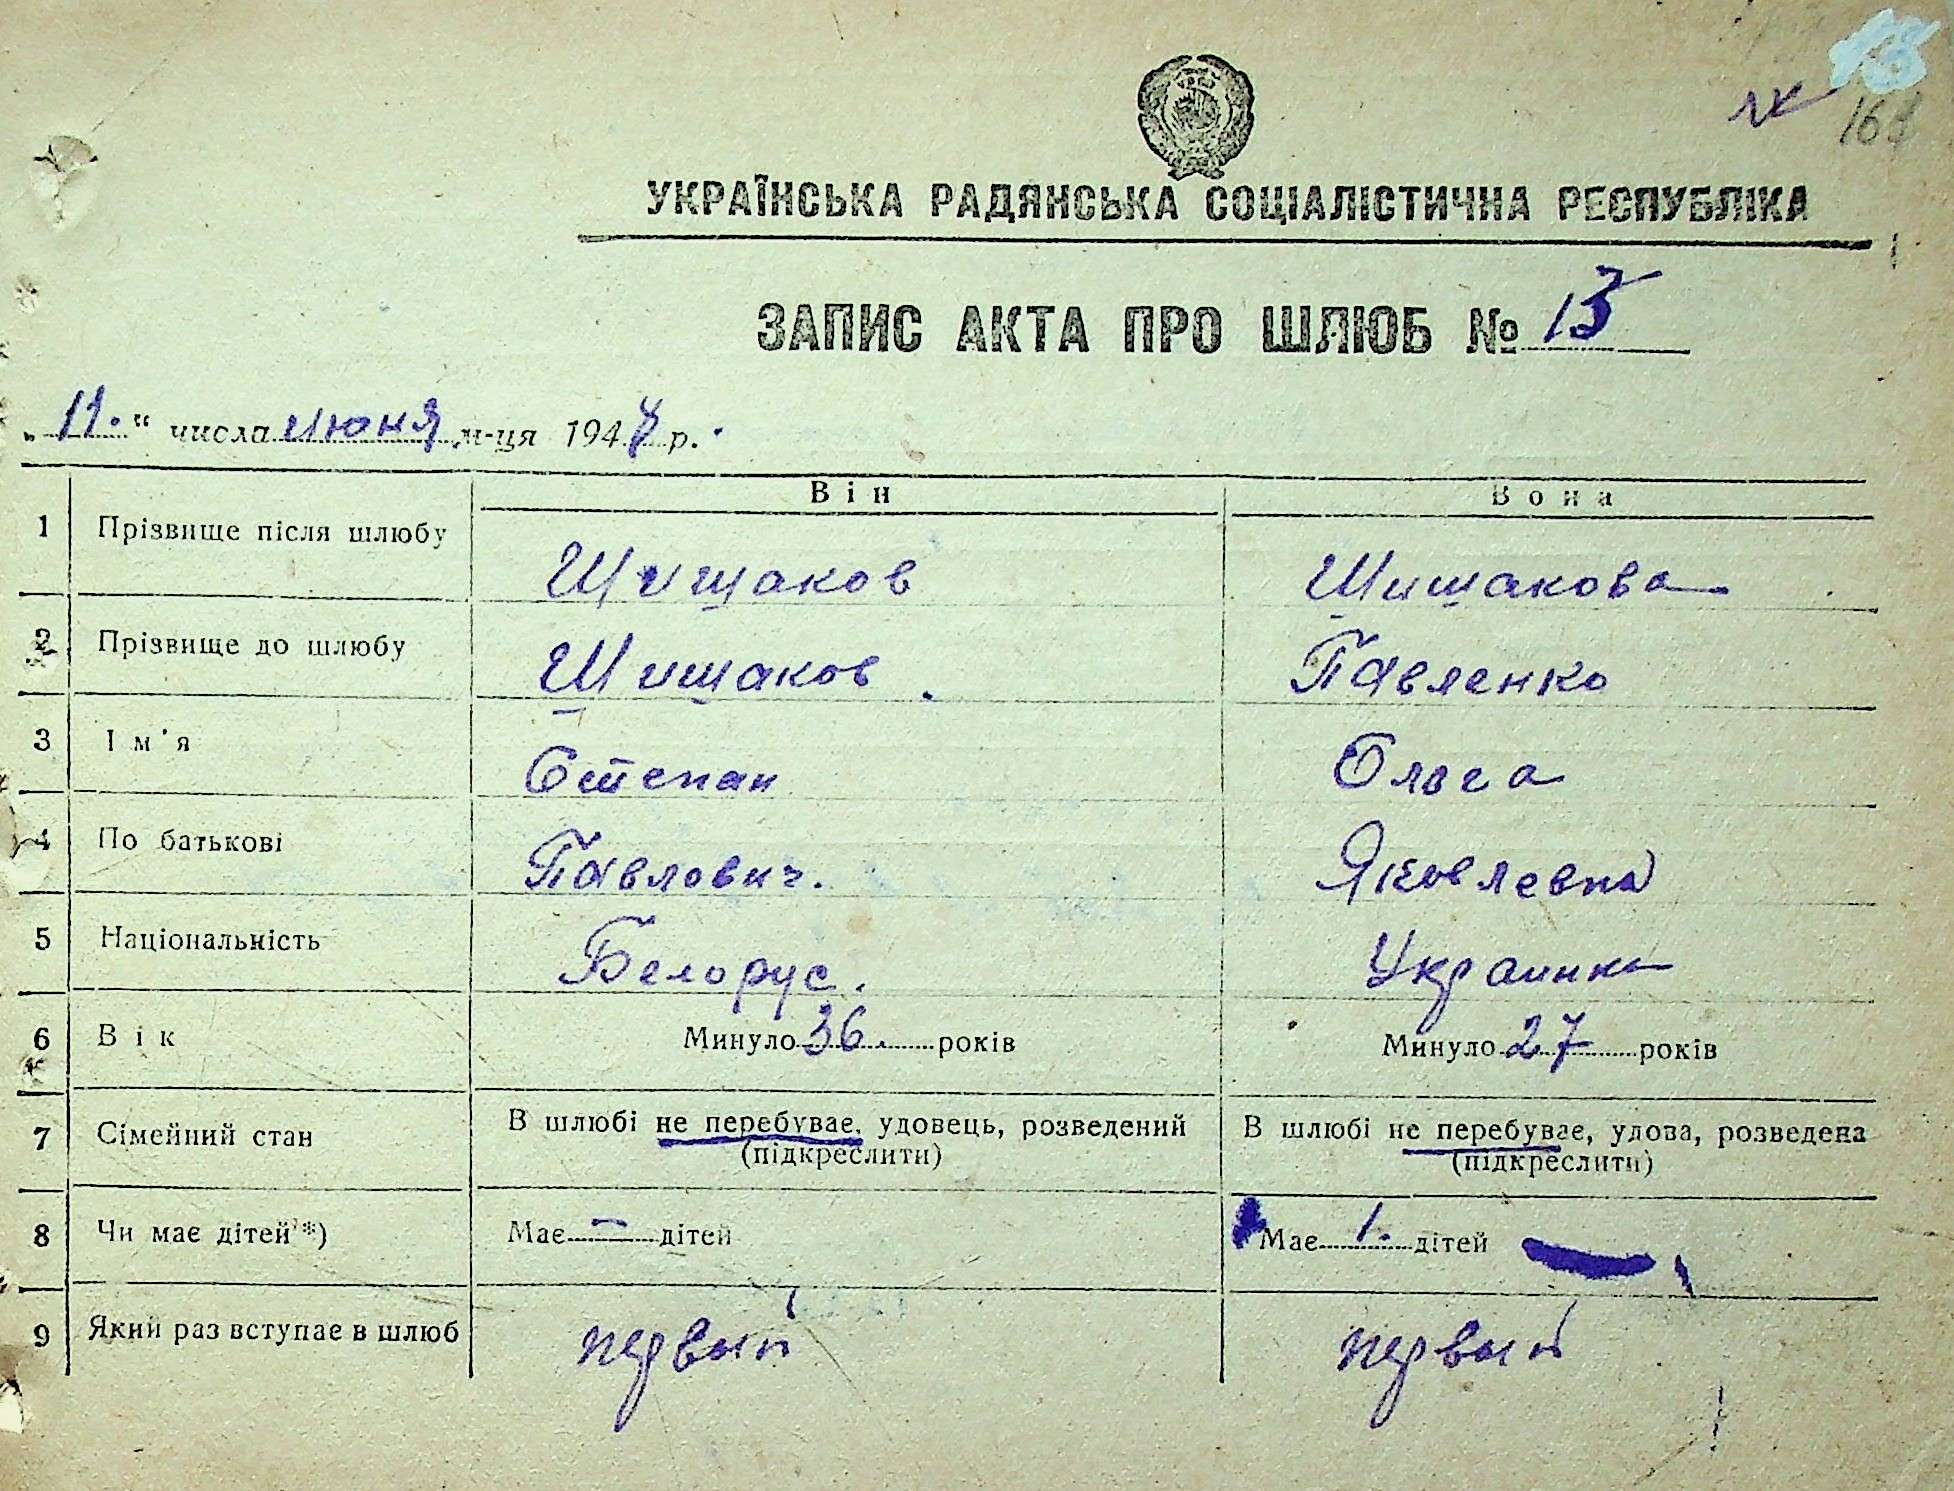 УКРАЇНСЬКА РАДЯНСЬКА СОЦІАЛІСТИЧНА РЕСПУБЛІКА
ЗАПИС АКТА ПРО ШЛЮБ № 13
„11.“ числа июня м-ця 1948 р.
Він Вона
1 Прізвище після шлюбу Шишаков Шишакова
2 Прізвище до шлюбу Шишаков. Павленко
3 Ім'я Степан Ольга
4 По батькові Павлович. Яковлевна
5 Національність Белорус. Украинка
6 Вік Минуло 36. років Минуло 27 років
7 Сімейний стан В шлюбі не перебуває, удовець, розведений В шлюбі не перебуває, удова, розведена
(підкреслити) (підкреслити)
8 Чи має дітей *) Має — дітей Має 1. дітей
9 Який раз вступає в шлюб первый первый